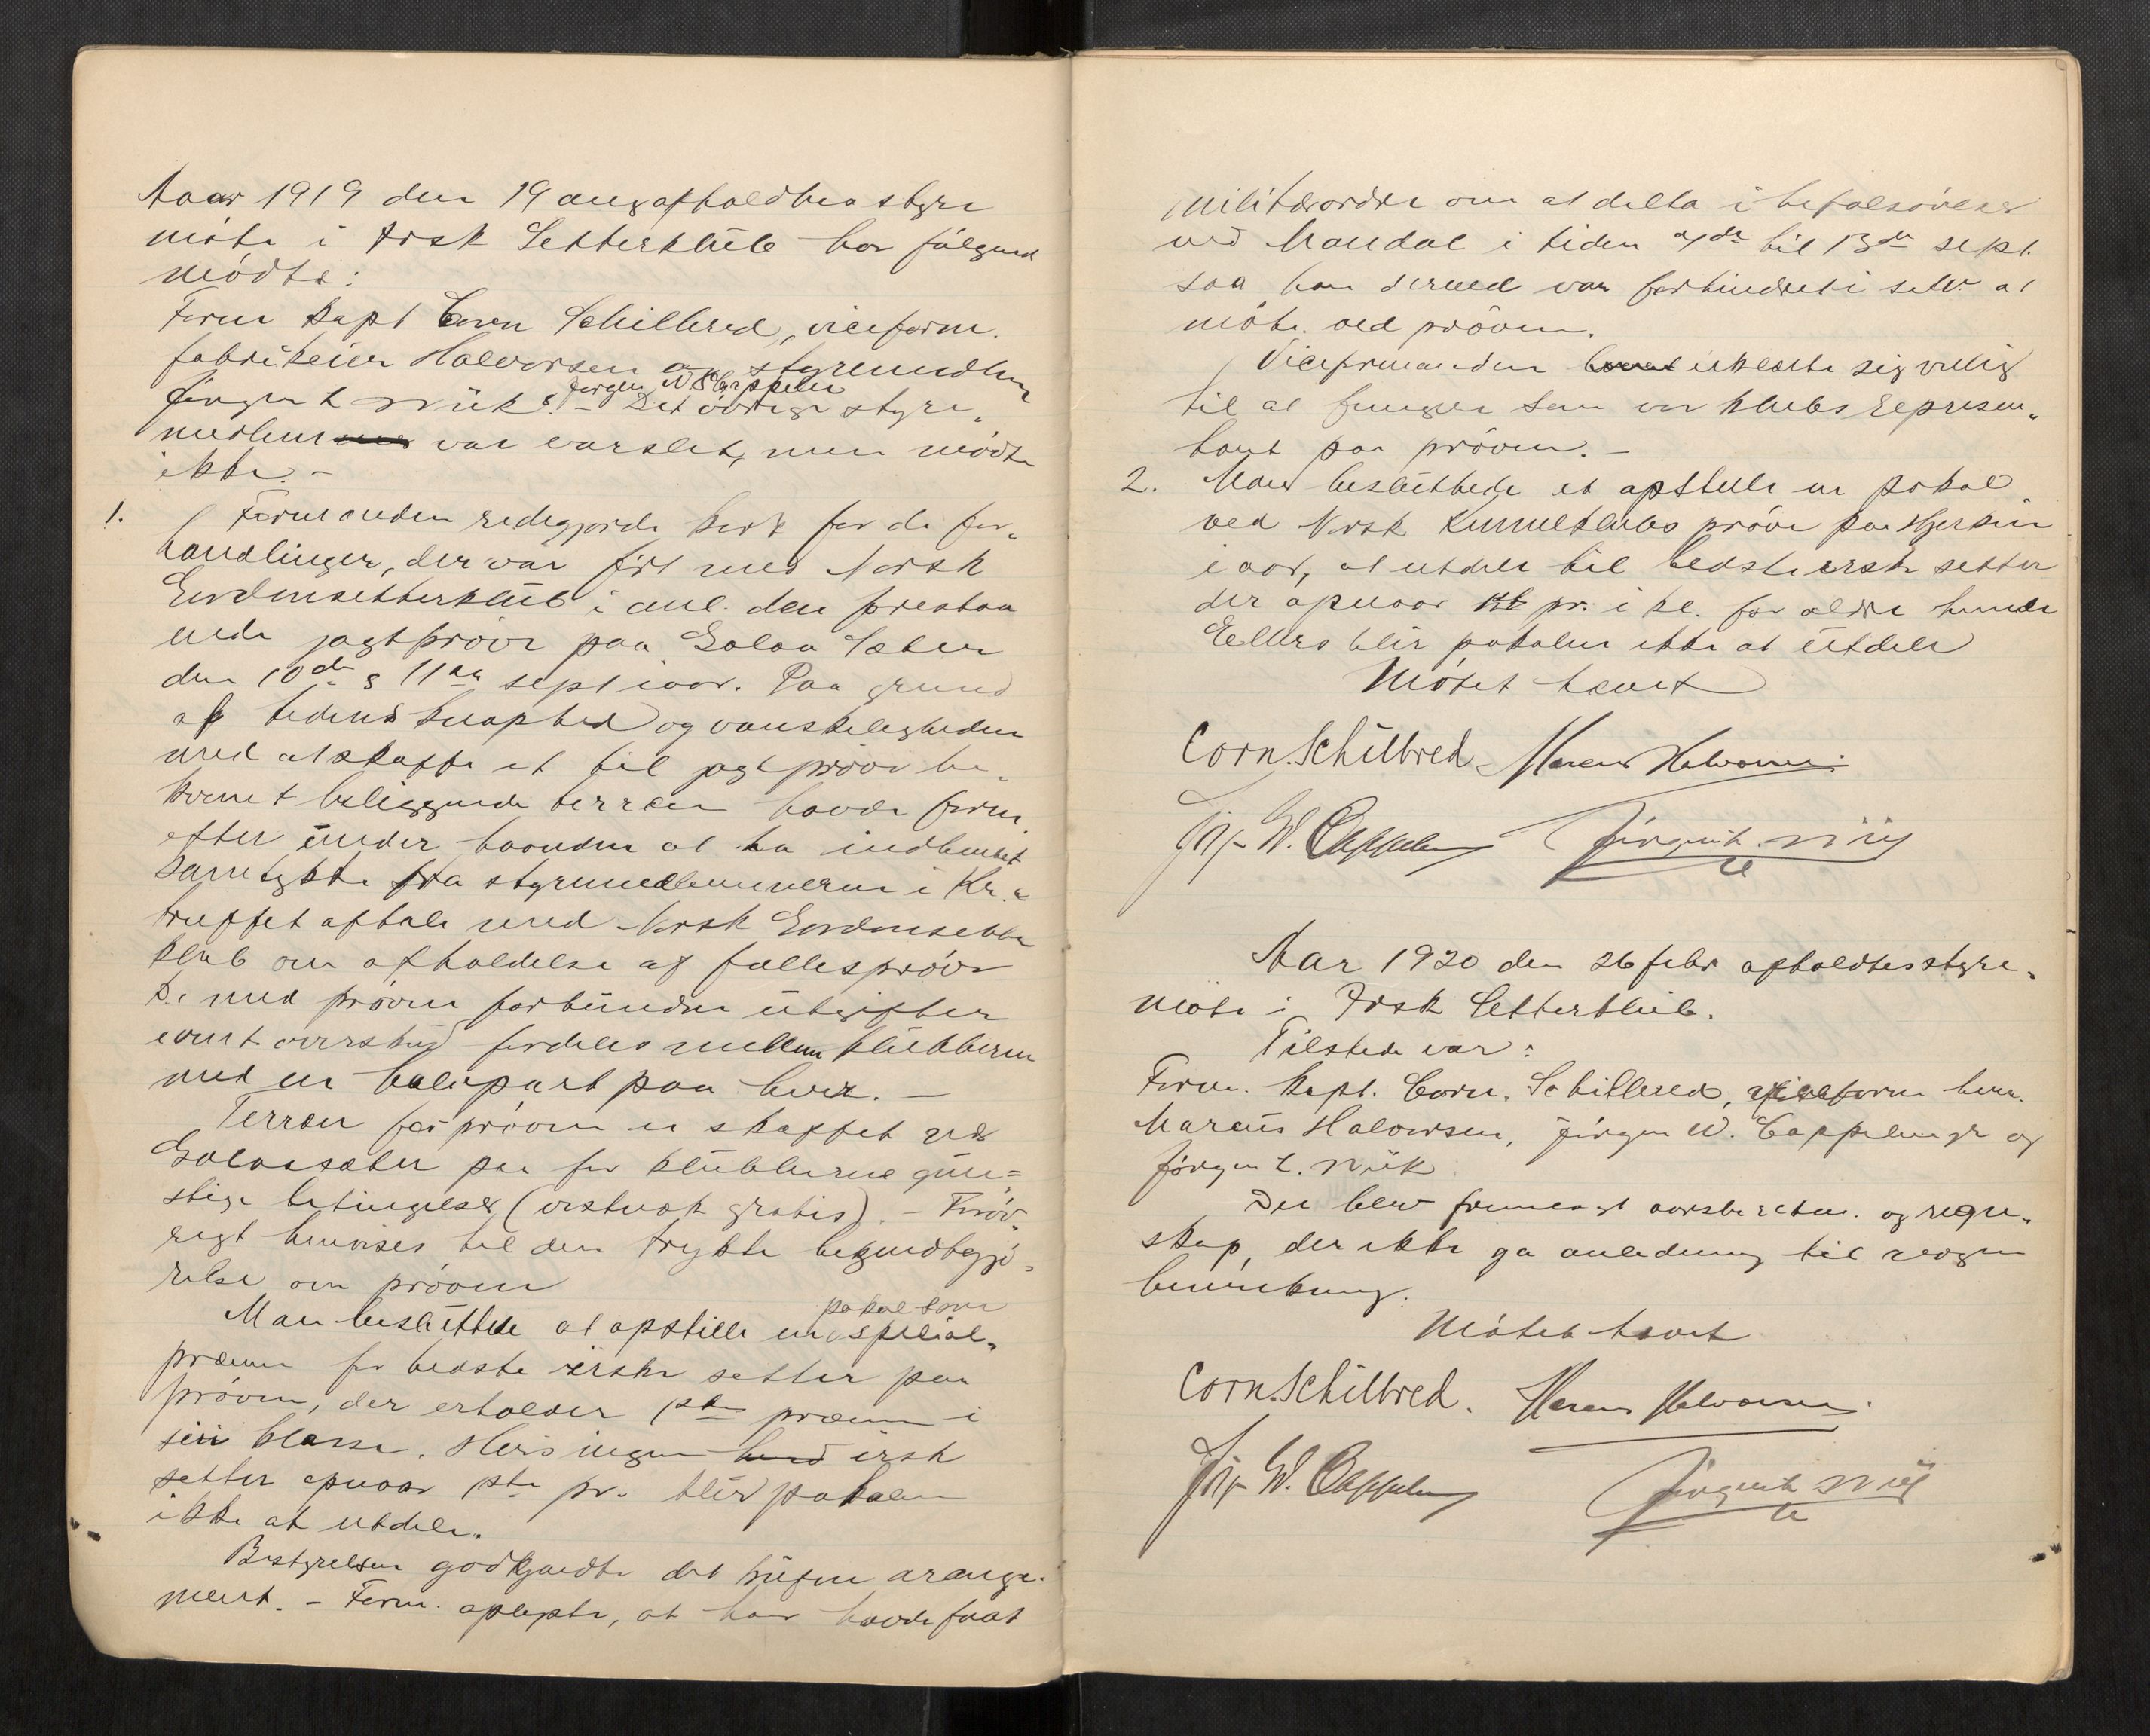 Aaar 1919 den 19 aug afholdtes styre
möte i Irsk Setterklüb hvor fölgend
mödte:
Form Kapt Corn Schilbred, viceform.
fabrikeier Halvorsen og styremedlem
Jörgen W. Cappelen
Jörgen t. Wiik. - Det övrige styre„
medlem var varslet, men mödte
ikke. -
1. Formanden redegjorde kort for de for„
handlinger, der var fört med Norsk
Gordonsetterklüb i anl. den forestaa
ende jagtpröve paa Golaa Sæter
den 10de & 11te sept iaar. Paa grund
af tidens knaphed og vanskeligheden
med at skaffe et til jagtpröve be„
kvemt beliggende terræn havde form.
efter ünder haanden at ha indhentet
samtykke fra styremedlemmerne i Kr.a
truffet aftale med Norsk Gordonsetter
klüb om afholdelse af fællespröve
De med pröven forbündne ütgifter
event overskud fordeles mellem klübberne
med en halvpart paa hver. -
Terræn for pröven er skaffet ved
Golaasæter paa for klübberne gün=
stige betingelser (vistnok gratis). - Foröv„
rigt henvises til den trykte bekjendtgjö„
relse om pröven
pokal som
Man beslüttede at opstille en spesial„
præmie for bedste irske setter paa
pröven, der erholder 1ste præmie i
sin klasse. Hvis ingen hund irsk
setter opnaar 1ste pr. blir pokalen
ikke at utdele.
Bestyrelsen godkjendte det trüfne arange„
ment. - Form. oplyste, at han havde faat
militærordre om at delta i befalsövelser
ved Mandal i tiden til 13de sept.
saa han dermed var forhindret i selv at
möte ved pröven.
Viceformanden erklærte sig villig
til at fungere som vor klubs represen„
tant paa pröven. -
2. Man beslüttede et opstille en pokal
ved Norsk Kennelklubs pröve paa Hjerkin
i aar, at utdele til bedste irske setter
der opnaar 1ste pr. i kl. for ældre hunde
Ellers blir pokalen ikke at ütdele
Mötet hævet
Corn. Schilbred Marcus Halvorsen.
Jörg. W. Cappelen Jörgen t. Wiik
Aar 1920 den 26 febr afholdtes styre„
möte i Irsk Setterklüb.
Tilstede var:
Form. Kapt. Corn. Schilbred, viceform herr.
Marcüs Halvorsen, Jörgen W. Cappelen jr og
Jörgen t. Wiik
Der blev fremlagt aarsberetn. og regn„
skap, der ikke ga anledning til nogen
bemerkning.
Mötet hævet
Corn. Schilbred. Marcus Halvorsen.
Jörg. W. Cappelen Jörgen t. Wiik